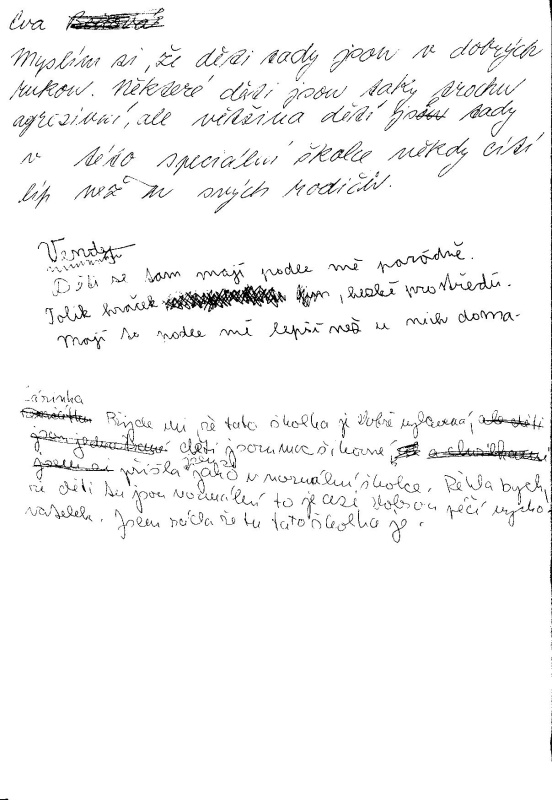 Eva
Myslím si, že děti tady jsou v dobrých
rukou. Některé děti jsou taky trochu
agresivní, ale většina dětí jsou tady
v této speciální školce někdy cítí
líp než u svých rodičů.
Vendy
Děti se tam mají podle mě parádně.
Tolik hraček, hezké prostředí.
Mají to podle mě lepší než u nich doma.
Kájinka
Přijde mi, že tato školka je dobře vybavená, ale děti
jsou děti jsou moc šikovné, a
jsem si přišla jako v normální školce. Řekla bych,
že děti tu jsou normální to je asi dobrou péčí vycho-
vatelek. Jsem ráda že tu tato školka je.